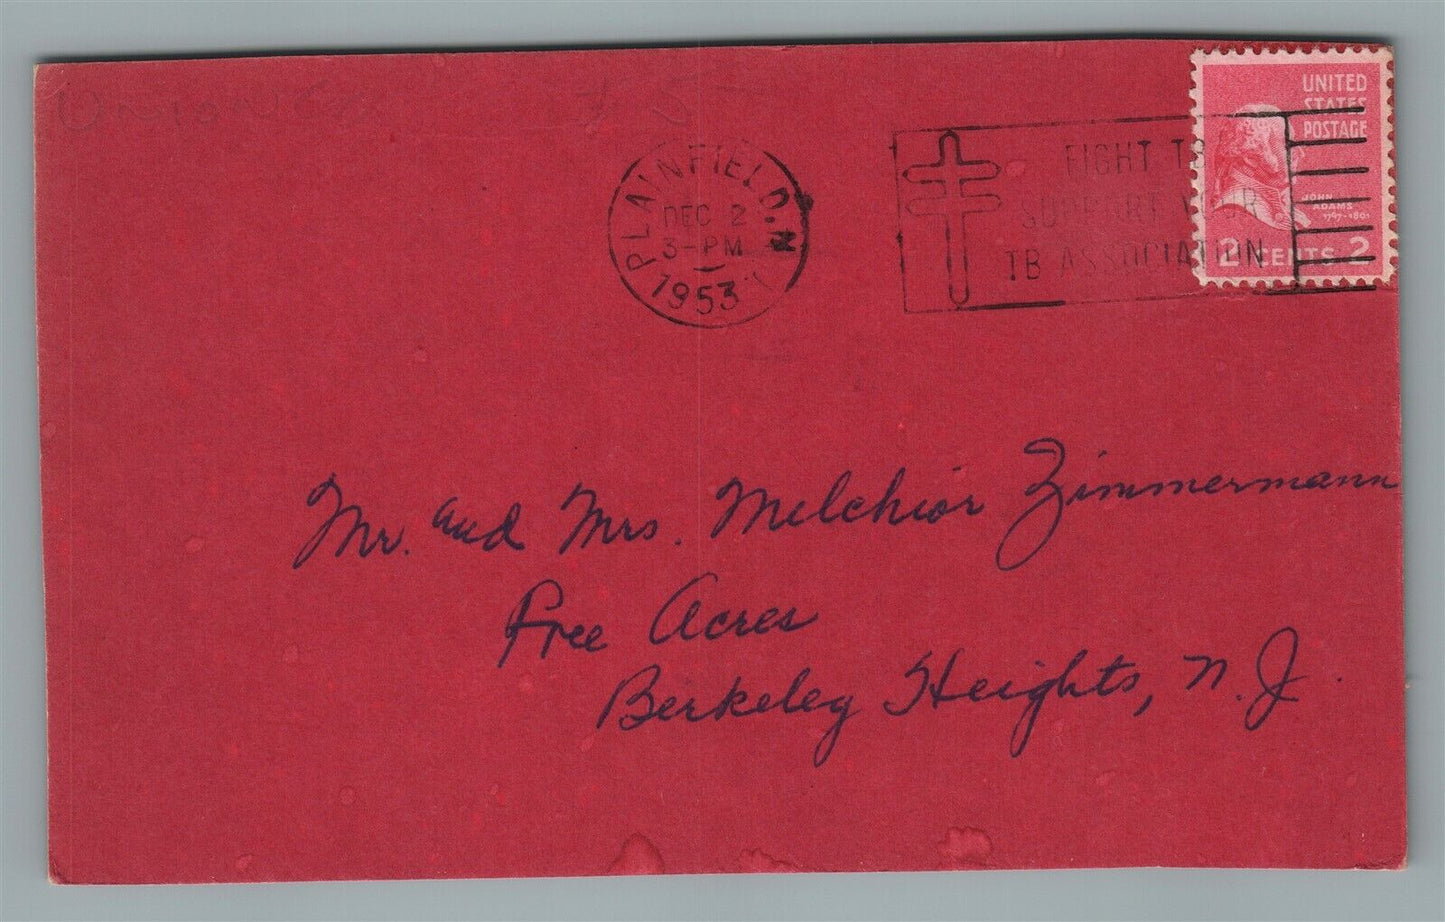 PLAINFIELD, N.J.
DEC 2
3-PM
1953
FIGHT TB
SUPPORT YOUR
TB ASSOCIATION
UNITED
STATES
POSTAGE
JOHN
ADAMS
1797-1801
2 CENTS 2
Mr. and Mrs. Melchior Zimmermann
Free Acres
Berkeley Heights, N.J.